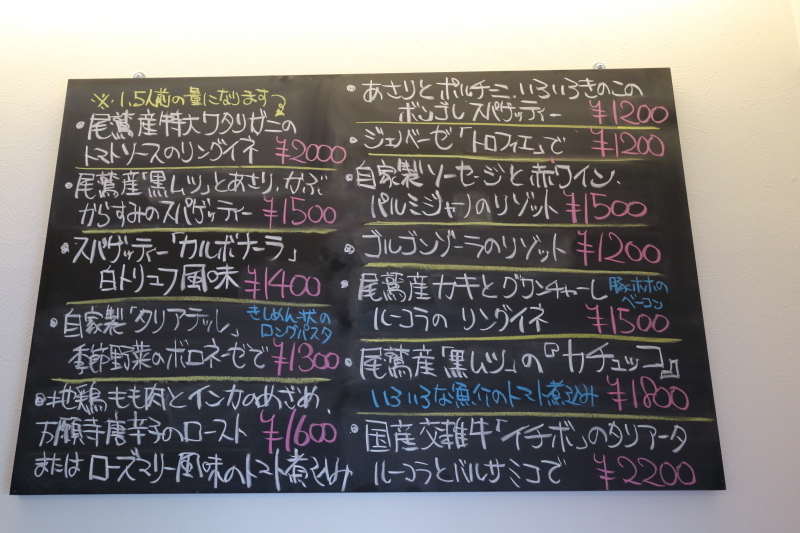 ※1.5人前の量になります
・尾鷲産特大ワタリガニの
トマトソースのリングイネ ¥2000
・尾鷲産「黒ムツ」とあさり、かぶ
からすみのスパゲッティー ¥1500
・スパゲッティー「カルボナーラ」
白トリュフ風味 ¥1400
・自家製「タリアテッレ」 きしめん状の
ロングパスタ
季節野菜のボロネーゼで ¥1300
・地鶏もも肉とインカのめざめ、
万願寺唐辛子のロースト ¥1600
または ローズマリー風味のトマト煮込み
・あさりとポルチーニ、いろいろきのこの
ボンゴレスパゲッティー ¥1200
・ジェノベーゼ「トロフィエ」で ¥1200
・自家製ソーセージと赤ワイン、
パルミジャーノのリゾット ¥1500
・ゴルゴンゾーラのリゾット ¥1200
・尾鷲産カキとグワンチャーレ 豚ホホの
ベーコン
ルーコラの リングイネ ¥1500
・尾鷲産「黒ムツ」の『カチュッコ』
いろいろな魚介のトマト煮込み ¥1800
・国産交雑牛「イチボ」のタリアータ
ルーコラとバルサミコで ¥2200